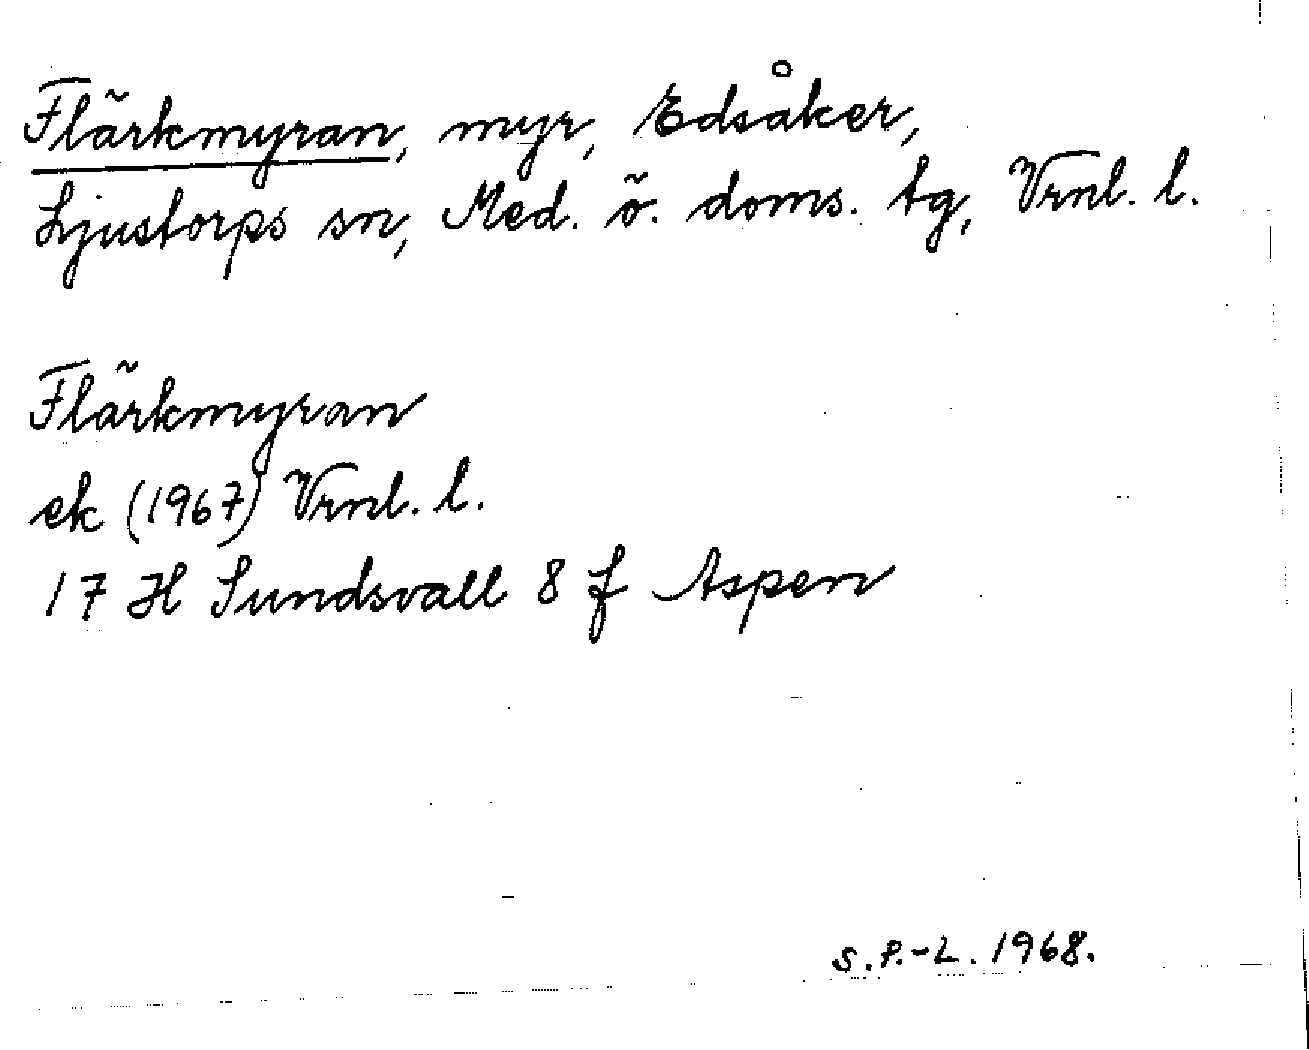 Flärkmyran, myr, Edsåker,
Ljustorps sn, Med. ö. doms. tg, Vrnl. l.
Flärkmyran
ek (1967) Vrnl. l.
17 H Sundsvall 8 f Aspen
S.P.-L. 1968.